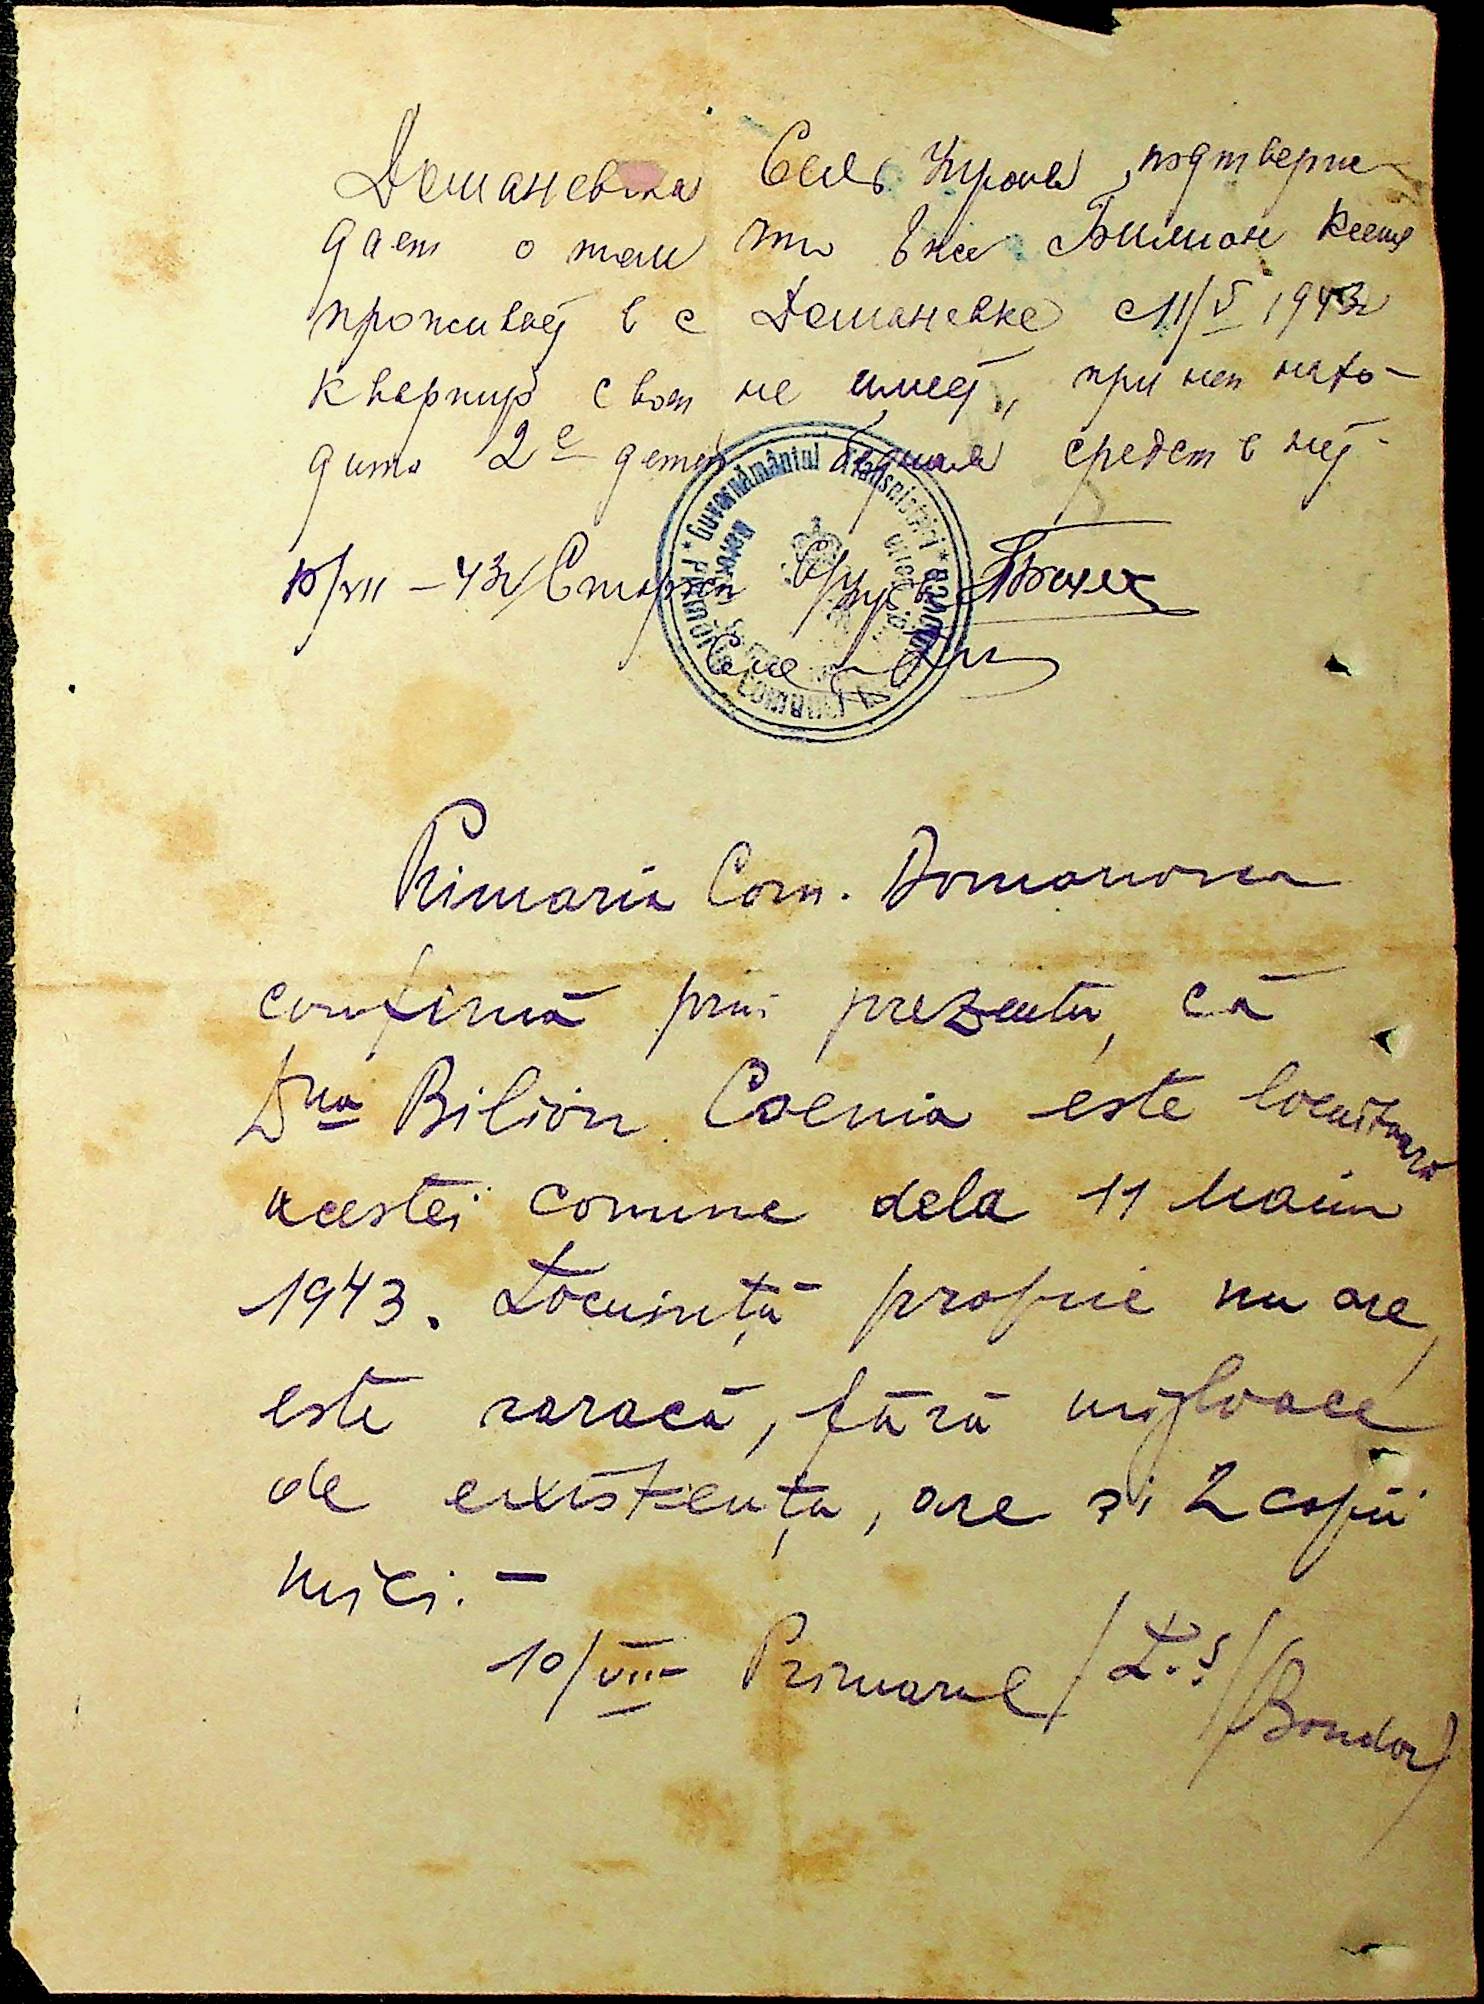 Домановска Сель Управа подтверж-
дает о том что в нее Билион Ксения
проживает в с Домановке с 11/V 1943
квартир своей не имеет, при ней нахо-
дится 2е детей бедная средств нет.
10/VII – 43 г/ Старост
* Guvernământul Transnistriei *
Primăria
Primaria Com. Domanovca
confirmă prin prezenta, că
Dna Bilion Csenia este locuitoară
acestei comune dela 11 Maiu
1943. Locuință proprie nu are,
este saracă, fără mijloace
de existența, are și 2 copii
mici. –
10/VIII Primarul /L.S/ (Bondar)